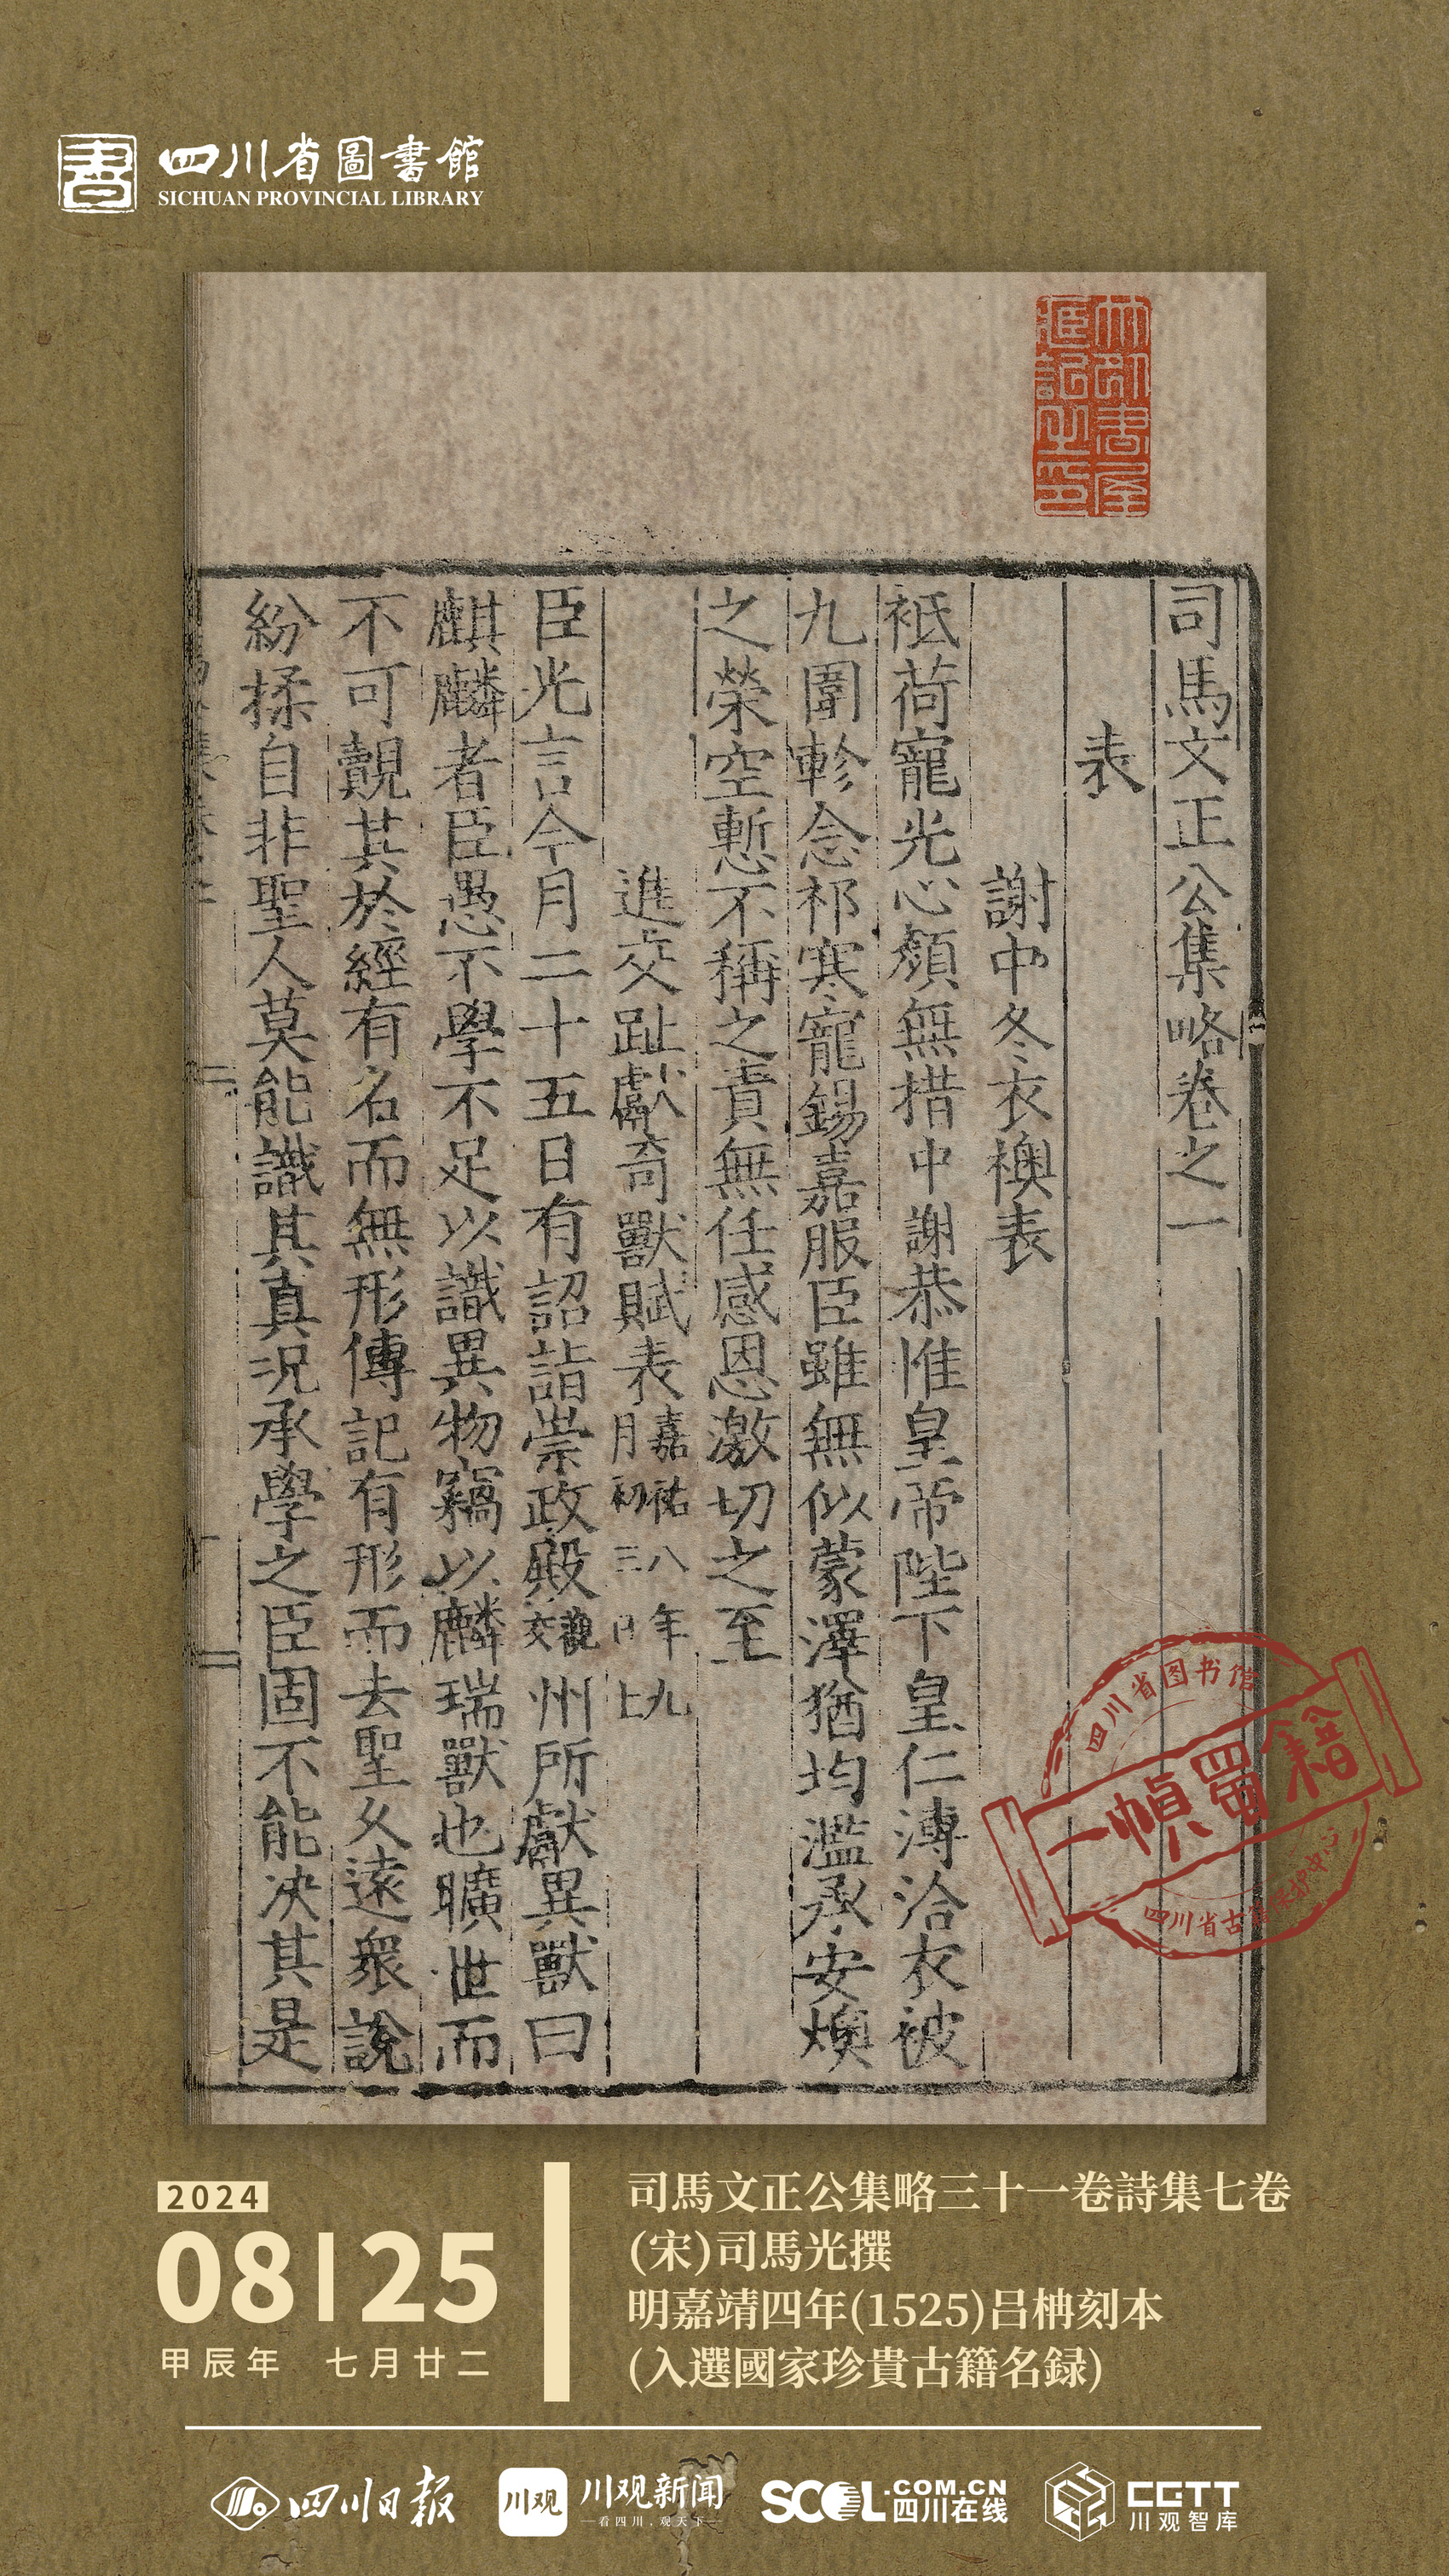 四川省圖書館
SICHUAN PROVINCIAL LIBRARY
司馬文正公集略卷之一
表
謝中冬衣襖表
祗荷寵光心顏無措中謝恭惟皇帝陛下皇仁溥洽衣被
九圍軫念祁寒寵錫嘉服臣雖無似蒙澤猶均濫承安燠
之榮空慙不稱之責無任感恩激切之至
進交趾獻奇獸賦表嘉祐八年九月初三日上
臣光言今月二十五日有詔詣崇政殿觀交州所獻異獸曰
麒麟者臣愚不學不足以識異物竊以麟瑞獸也曠世而
不可覿其於經有名而無形傳記有形而去聖久遠衆說
紛揉自非聖人莫能識其真況承學之臣固不能决其是
四川省图书馆
一幀蜀籍
四川省古籍保护中心
2024
08|25
甲辰年 七月廿二
司馬文正公集略三十一卷詩集七卷
(宋)司馬光撰
明嘉靖四年(1525)吕柟刻本
(入選國家珍貴古籍名録)
四川日报
川观
川观新闻
看四川,观天下
SCOL.COM.CN
四川在线
CGTT
川观智库